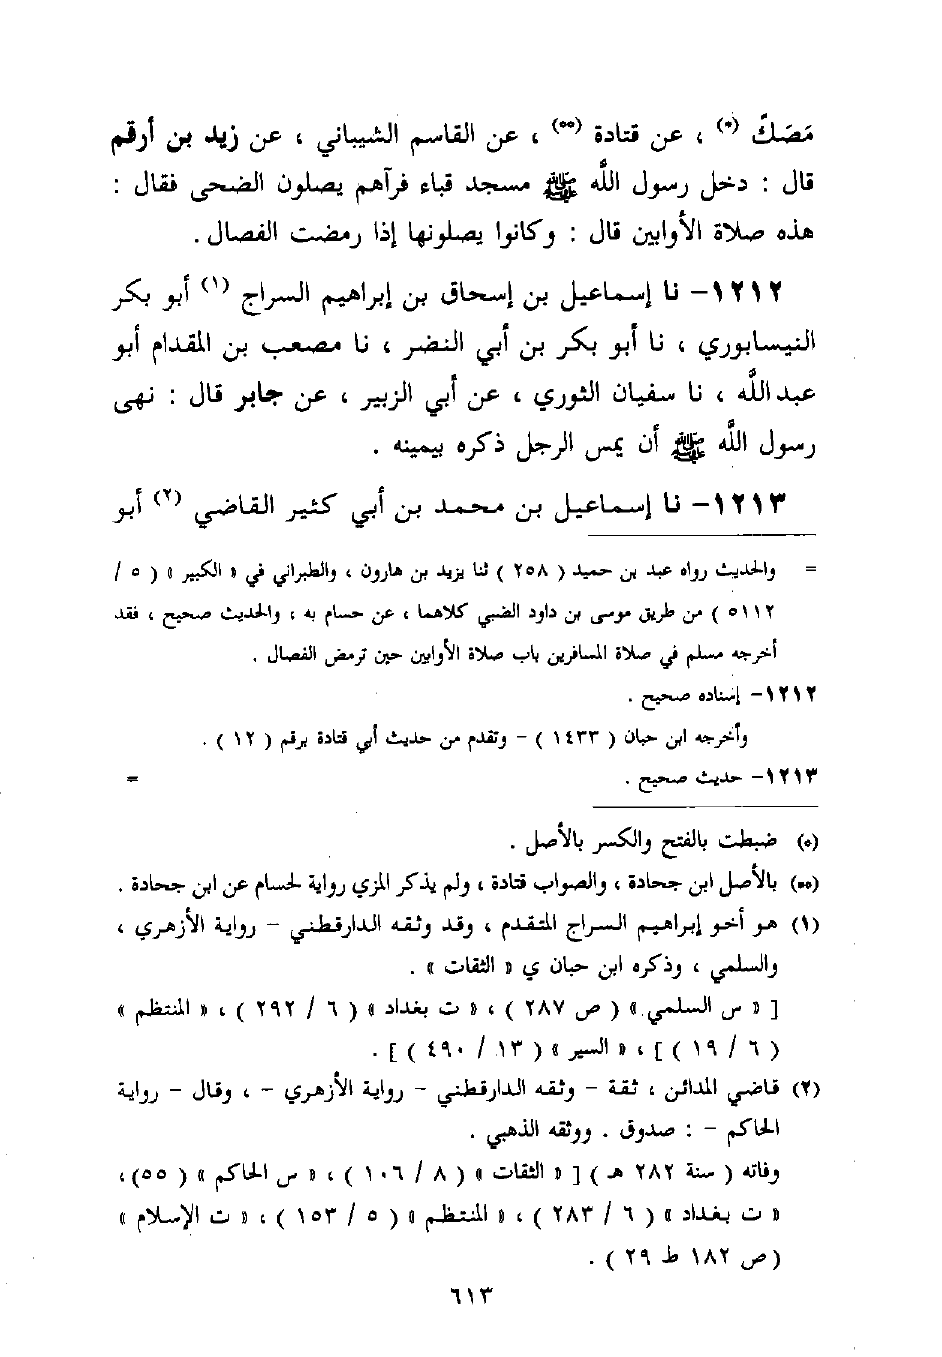 مَصَكّ (*) ، عن قتادة (**) ، عن القاسم الشيباني ، عن زيد بن أرقم
قال : دخل رسول الله ﷺ مسجد قباء فرآهم يصلون الضحى فقال :
هذه صلاة الأوابين قال : وكانوا يصلونها إذا رمضت الفصال .
١٢١٢– نا إسماعيل بن إسحاق بن إبراهيم السراج (١) أبو بكر
النيسابوري ، نا أبو بكر بن أبي النضر ، نا مصعب بن المقدام أبو
عبد الله ، نا سفيان الثوري ، عن أبي الزبير ، عن جابر قال : نهى
رسول الله ﷺ أن يمس الرجل ذكره بيمينه .
١٢١٣– نا إسماعيل بن محمد بن أبي كثير القاضي (٢) أبو
= والحديث رواه عبد بن حميد ( ٢٥٨ ) ثنا يزيد بن هارون ، والطبراني في « الكبير » ( ٥ /
٥١١٢ ) من طريق موسى بن داود الضبي كلاهما ، عن حسام به ، والحديث صحيح ، فقد
أخرجه مسلم في صلاة المسافرين باب صلاة الأوابين حين ترمض الفصال .
١٢١٢– إسناده صحيح .
وأخرجه ابن حبان ( ١٤٣٣ ) – وتقدم من حديث أبي قتادة برقم ( ١٢ ) .
١٢١٣– حديث صحيح . =
(*) ضبطت بالفتح والكسر بالأصل .
(**) بالأصل ابن جحادة ، والصواب قتادة ، ولم يذكر المزي رواية لحسام عن ابن جحادة .
(١) هو أخو إبراهيم السراج المتقدم ، وقد وثقه الدارقطني – رواية الأزهري ،
والسلمي ، وذكره ابن حبان ي « الثقات » .
[ « س السلمي » ( ص ٢٨٧ ) ، « ت بغداد » ( ٦ / ٢٩٢ ) ، « المنتظم »
( ٦ / ١٩ ) ] ، « السير » ( ١٣ / ٤٩٠ ) ] .
(٢) قاضي المدائن ، ثقة – وثقه الدارقطني – رواية الأزهري – ، وقال – رواية
الحاكم – : صدوق . ووثقه الذهبي .
وفاته ( سنة ٢٨٢ هـ ) [ « الثقات » ( ٨ / ١٠٦ ) ، « س الحاكم » ( ٥٥ ) ،
« ت بغداد » ( ٦ / ٢٨٣ ) ، « المنتظم » ( ٥ / ١٥٣ ) ، « ت الإسلام »
( ص ١٨٢ ط ٢٩ ) .
٦١٣